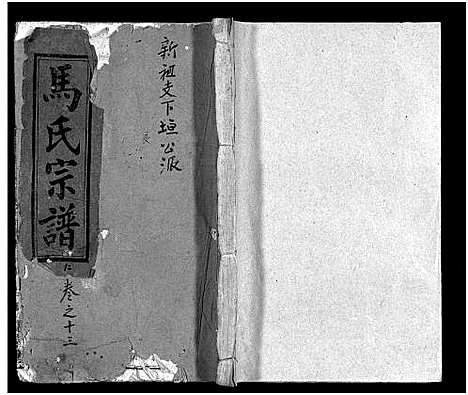 新祖支下垣公派
馬氏宗譜
卷之十三